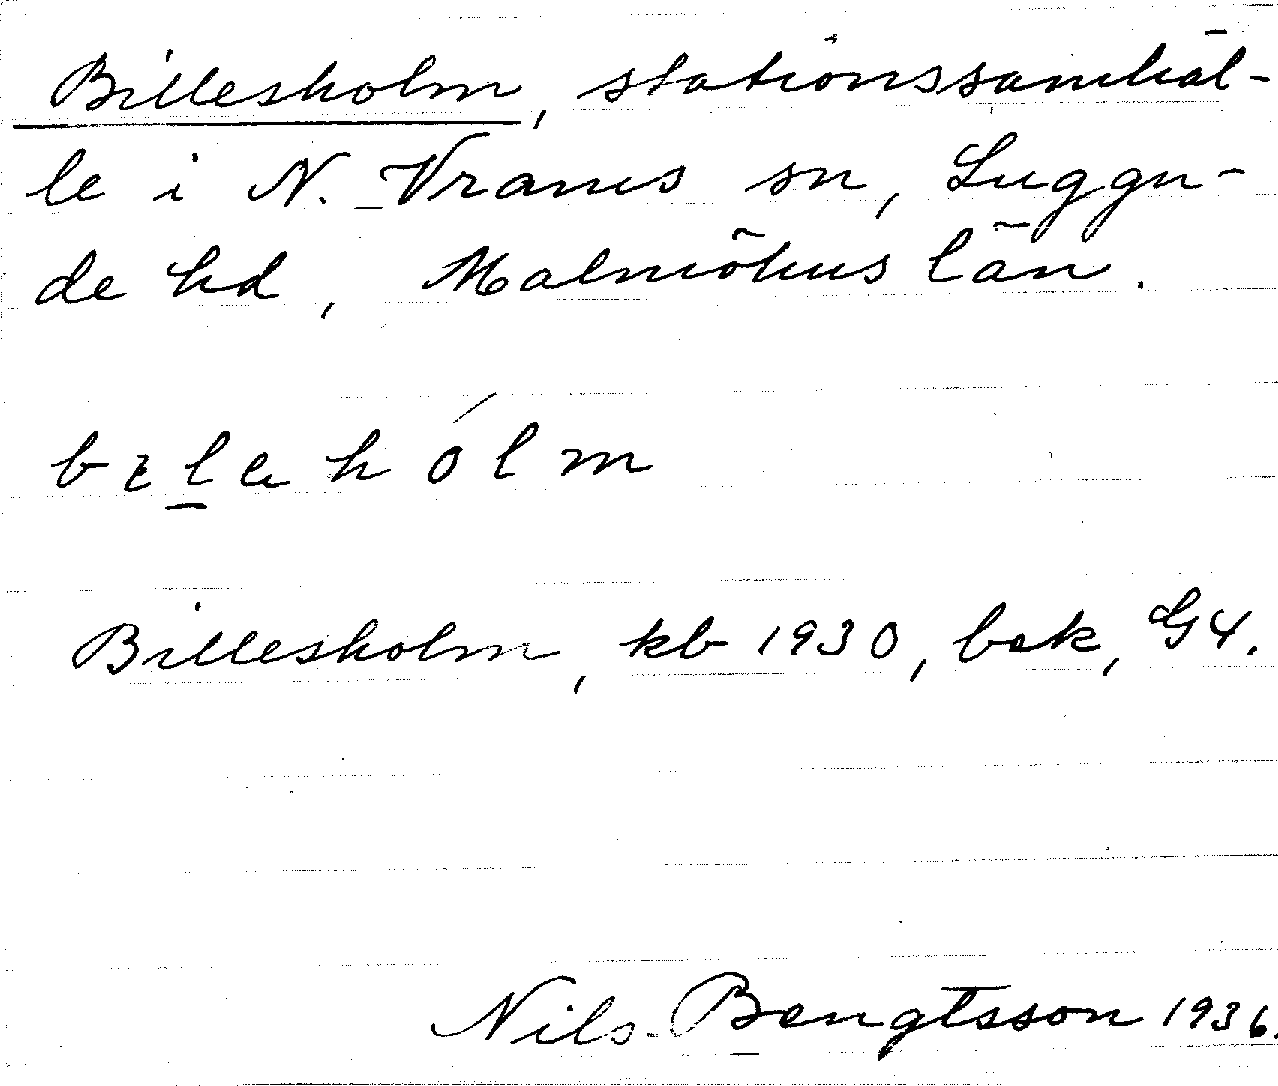 Billesholm, stationssamhäl-
le i N. Vrams sn, Luggu-
de hd, Malmöhus län.
bɪlahólm
Billesholm, kb 1930, bek, G4.
Nils Bengtsson 1936.